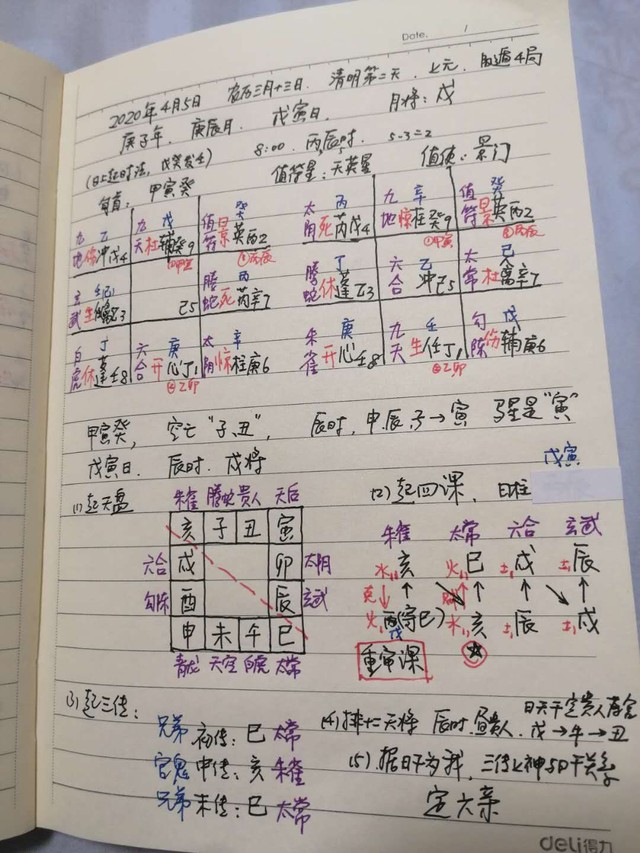 Date. 1
2020年4月5日 农历三月十三日. 清明第二天. 上元. 阳遁4局
庚子年, 庚辰月, 戊寅日. 月将: 戌
(日上起时法, 戊癸发4) 8:00. 丙辰时. 5-3=2
旬首: 甲寅癸 值符星: 天英星 值使: 景门
九 乙 九 戊 值 癸 太 丙 九 辛 值 癸
地伤冲戊4 天杜辅癸9 符景英丙2 阴死芮戊4 地惊柱癸9 符景英丙2
①甲寅 ③丙辰 ①甲寅 ③丙辰
玄 壬己 腾 丙 腾 丁 六 乙 太 己
武生 乙3 乙5 蛇死芮辛7 蛇休蓬乙3 合 冲乙5 常杜 辛7
白 丁 六 庚 太 辛 朱 庚 九 壬 勾 戊
虎休蓬壬8 合开心丁1 阴惊柱庚6 雀开心壬8 天生任丁1 陈伤辅庚6
②乙卯 ②乙卯
甲寅癸, 空亡"子,丑", 辰时, 申.辰.子→寅 马星是"寅"
戊寅日. 辰时. 戌将
戊寅
(1)起天盘 朱雀 腾蛇 贵人 天后 (2)起四课, 日柱
亥 子 丑 寅 朱雀 太常 六合 玄武
六合 戌 卯 太阴 水亥 火巳 土戌 土辰
勾陈 酉 辰 玄武 克↓ ↑ ↑ ↑ ↑
申 未 午 巳 火 (寄巳) 水亥 土辰 土戌
戊
青龙 天空 白虎 太常 重审课
(3)起三传: 日天干定贵人存舍
兄弟 初传: 巳 太常 (4)排十二天将 辰时.昼贵人. 戊→午→丑
官鬼 中传: 亥 朱雀 (5).据日干为我, 三传上神与日干关系
兄弟 末传: 巳 太常 定六亲
deli得力